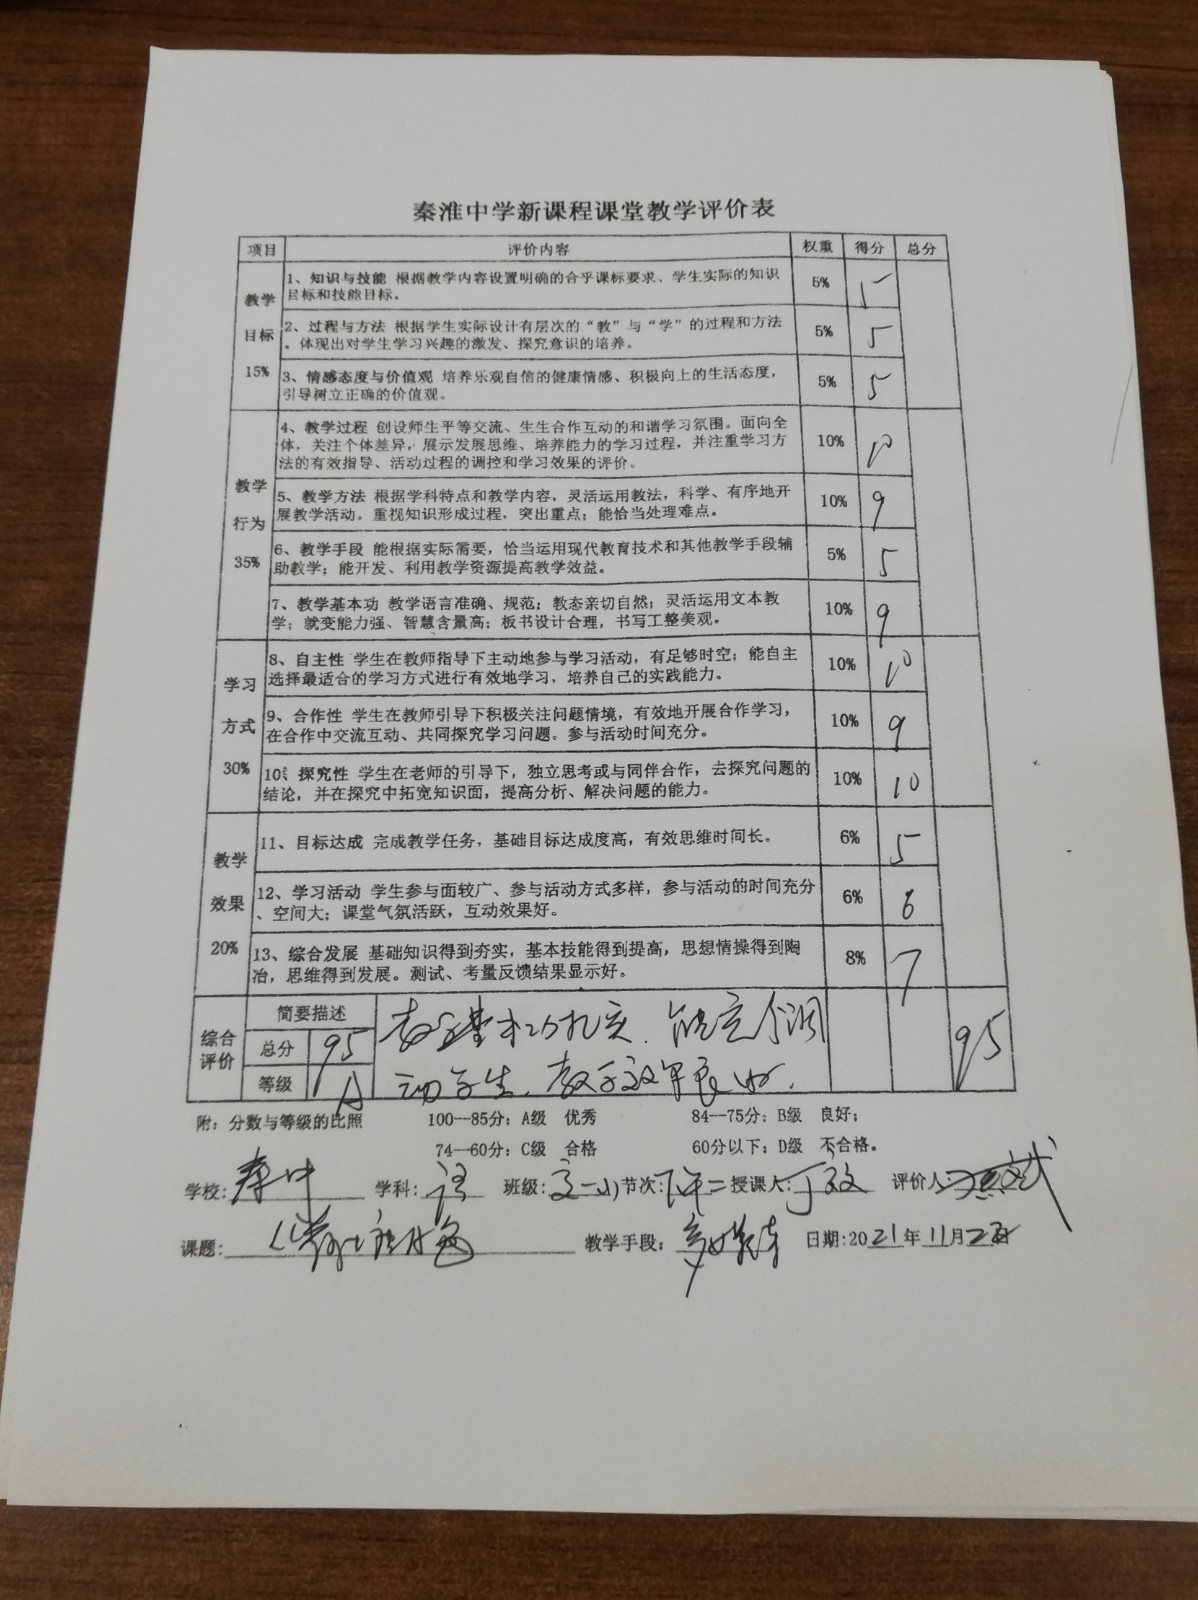 秦淮中学新课程课堂教学评价表
项目 评价内容 权重 得分 总分
教学
目标
15%
1、知识与技能 根据教学内容设置明确的合乎课标要求、学生实际的知识
目标和技能目标。
5% 5
2、过程与方法 根据学生实际设计有层次的“教”与“学”的过程和方法
，体现出对学生学习兴趣的激发、探究意识的培养。
5% 5
3、情感态度与价值观 培养乐观自信的健康情感、积极向上的生活态度，
引导树立正确的价值观。
5% 5
教学
行为
35%
4、教学过程 创设师生平等交流、生生合作互动的和谐学习氛围。面向全
体，关注个体差异，展示发展思维、培养能力的学习过程，并注重学习方
法的有效指导、活动过程的调控和学习效果的评价。
10% 10
5、教学方法 根据学科特点和教学内容，灵活运用教法，科学、有序地开
展教学活动。重视知识形成过程，突出重点；能恰当处理难点。
10% 9
6、教学手段 能根据实际需要，恰当运用现代教育技术和其他教学手段辅
助教学；能开发、利用教学资源提高教学效益。
5% 5
7、教学基本功 教学语言准确、规范；教态亲切自然；灵活运用文本教
学；就变能力强、智慧含量高；板书设计合理，书写工整美观。
10% 9
学习
方式
30%
8、自主性 学生在教师指导下主动地参与学习活动，有足够时空；能自主
选择最适合的学习方式进行有效地学习，培养自己的实践能力。
10% 10
9、合作性 学生在教师引导下积极关注问题情境，有效地开展合作学习，
在合作中交流互动、共同探究学习问题。参与活动时间充分。
10% 9
10、探究性 学生在老师的引导下，独立思考或与同伴合作，去探究问题的
结论，并在探究中拓宽知识面，提高分析、解决问题的能力。
10% 10
教学
效果
20%
11、目标达成 完成教学任务，基础目标达成度高，有效思维时间长。
6% 5
12、学习活动 学生参与面较广、参与活动方式多样，参与活动的时间充分
、空间大；课堂气氛活跃，互动效果好。
6% 6
13、综合发展 基础知识得到夯实，基本技能得到提高，思想情操得到陶
冶，思维得到发展。测试、考量反馈结果显示好。
8% 7
综合
评价
简要描述
总分 95
等级 A
教学基本功扎实、能充分调
动学生、教学效果良好.
95
附：分数与等级的比照 100--85分：A级 优秀 84--75分：B级 良好；
74--60分：C级 合格 60分以下：D级 不合格。
学校：秦中 学科：语 班级： 节次：下午二 授课人：丁 评价人：
课题： 教学手段：多媒体 日期：2021年11月